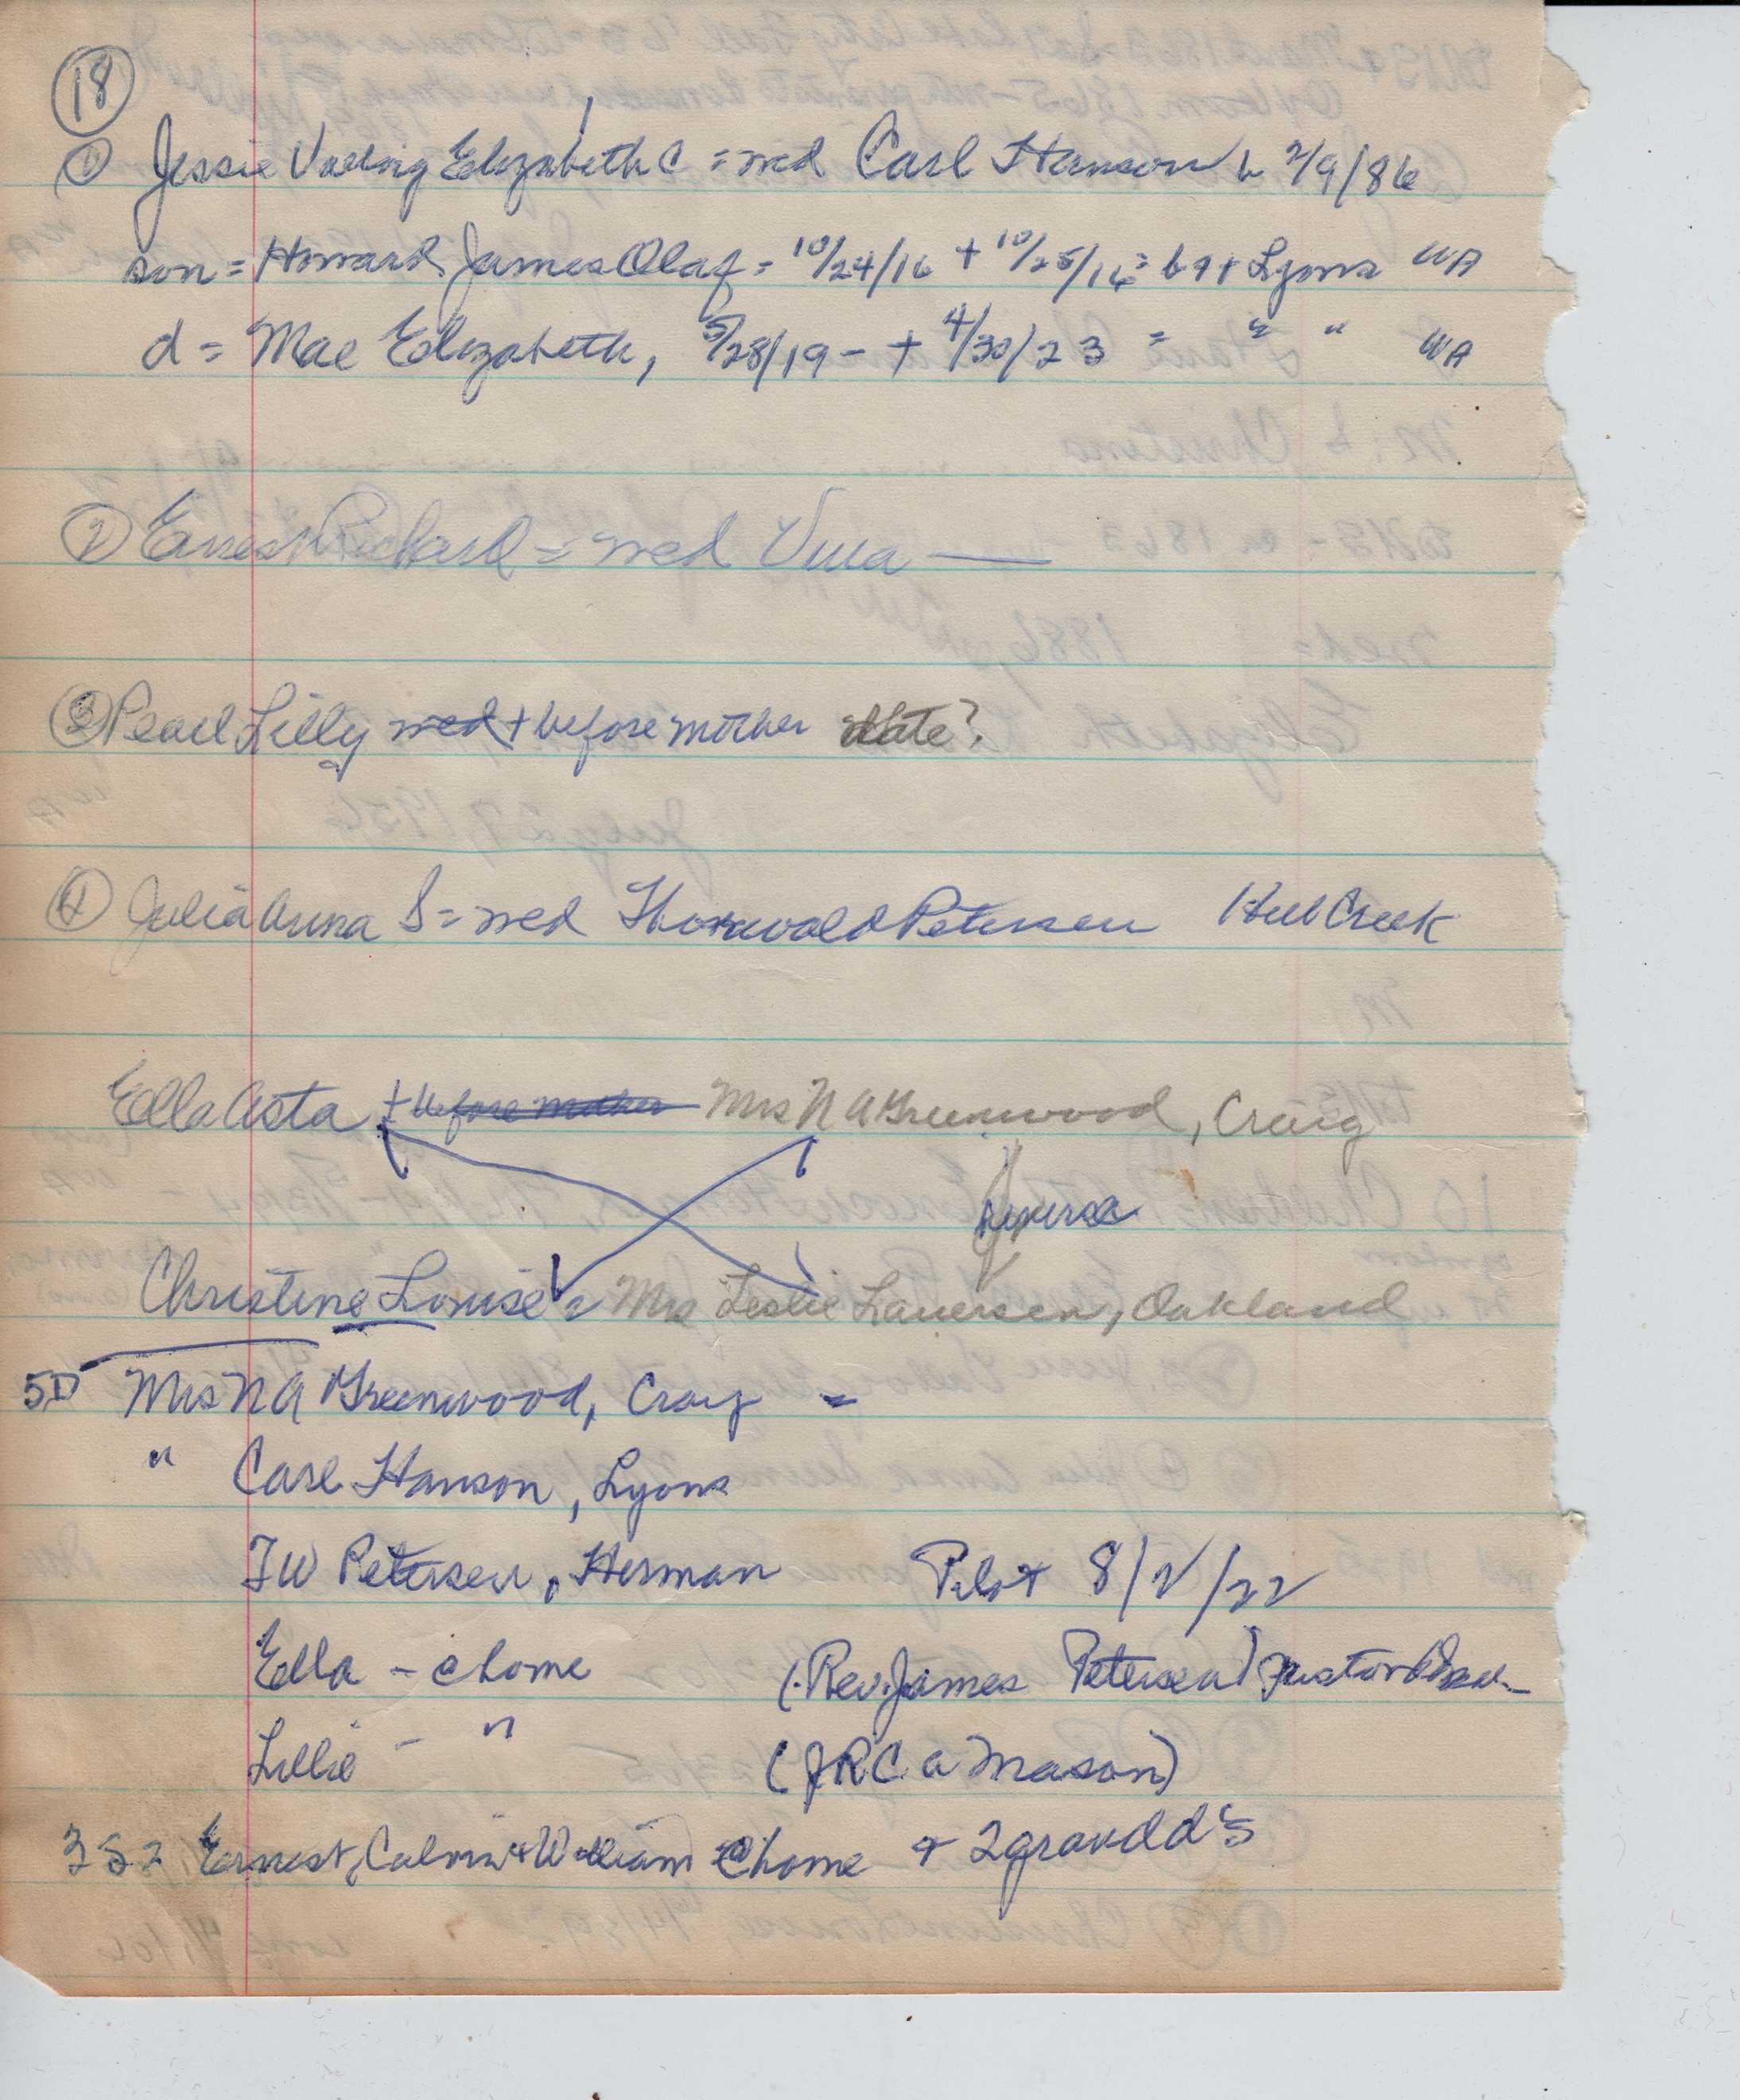 18
① Jessie Elizabeth C = wed Carl Hanson b 2/9/86
son = Howard James Olaf = 10/24/16 + 10/25/16 = b 9+ Lyons WA
d = Mae Elizabeth, 5/28/19 - + 4/30/23 = " " WA
② Ernest Richard = wed
③ Pearl Lilly wed + before mother date?
④ Julia Anna S = wed Thorwald Petersen Creek
Ella Asta + before mother Mrs N A Greenwood, Craig
reverse
Christine Louise = Mrs Leslie Lauersen, Oakland
5D Mrs N A Greenwood, Craig -
" Carl Hanson, Lyons
TW Petersen, Herman Pilot 8/2/22
Ella - @ home (Rev. James Petersen) pastor
Lillie - " (JRC a Mason)
3 S = Ernest, Calvin + William @ home + 2 grandd's